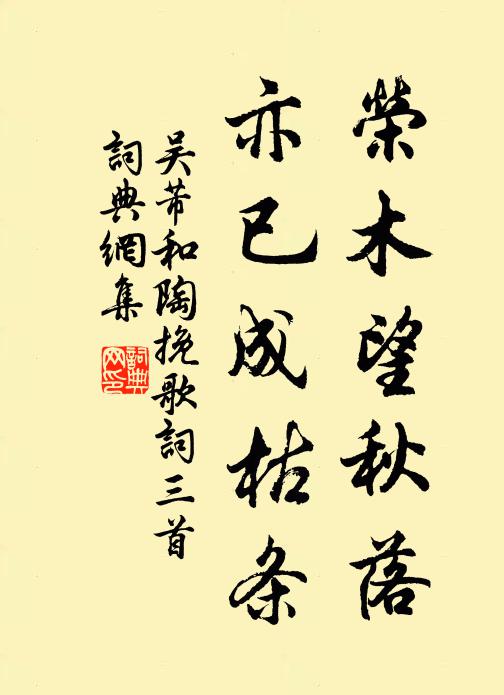 榮木望秋落
亦已成枯条
吴芾和陶挽歌詞三首
詞典網集
詞典網印